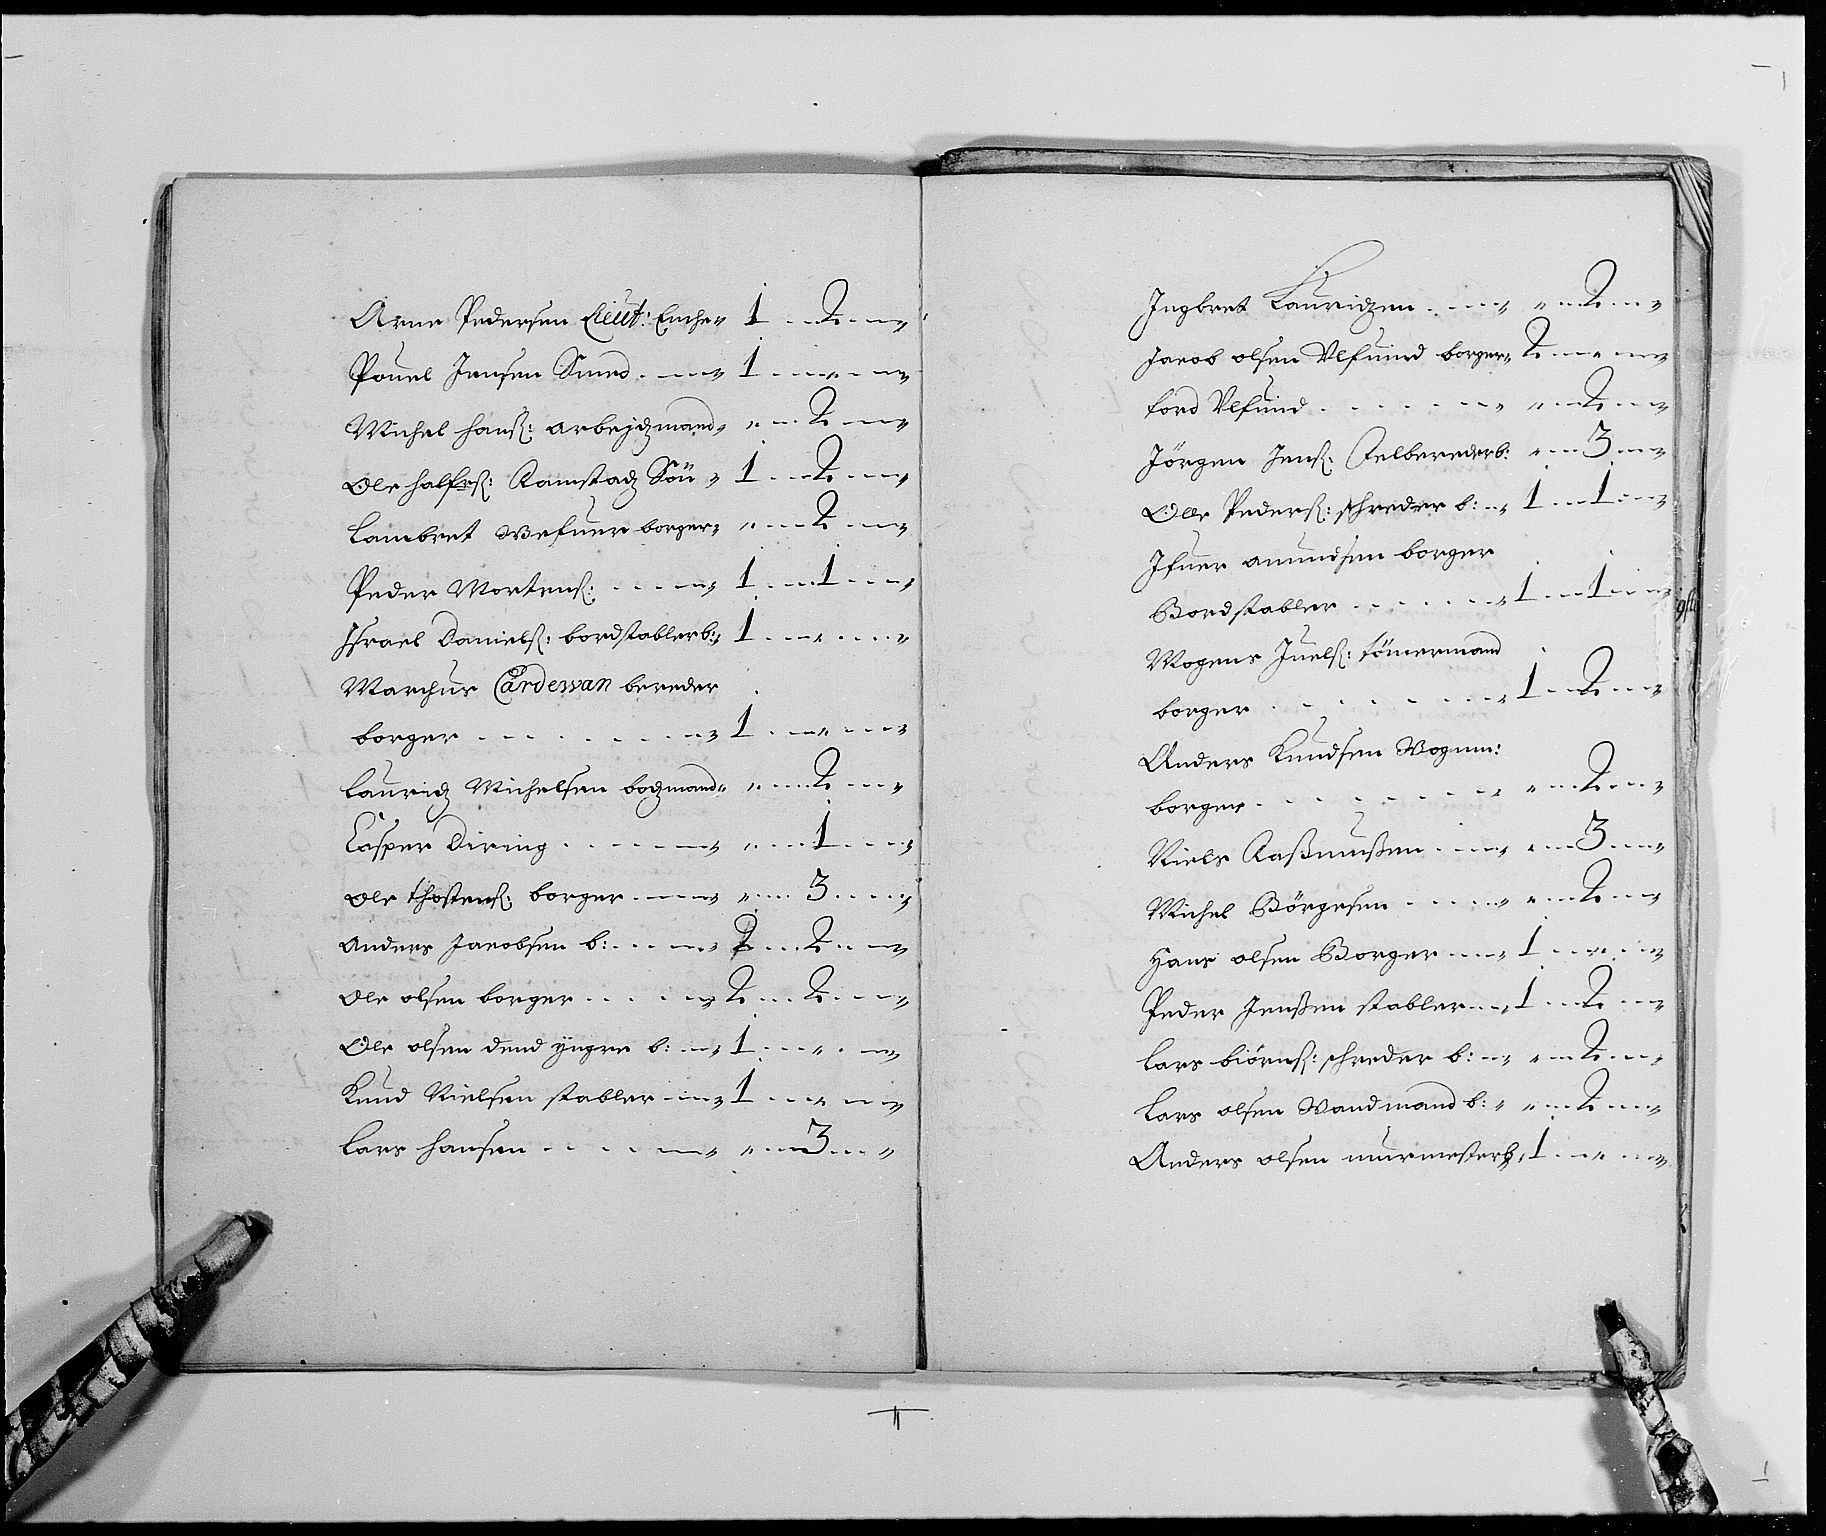 Arne Pedersen Lieut: Enche„ 1 .. 2 ..„
Pouel Jensen Smed . ...„ 1 ...„...„
Michel hanſ: arbejdzmand„ „ .. 2 ..„
Ole halfrſ: Ramstadz Sön „ 1 ... 2 ..„
Lambret Wefuer borger„ „ ... 2 ..„
Peder Mortenſ: .....„ 1 ... 1 ...„
Jſrael Danielſ: bordstabler b:„ 1 ...„...„
Marchus Cardewan bereder
borger ........„ 1 ...„...„
Lauridz Michelsen bodzmand„ „ ... 2 ..„
Casper Diring ......„ „ ... 1 ...„
Ole thostenſ: borger .....„ „ ... 3 ...„
Anders Jacobsen b: .....„ 2 ... 2 ..„
Ole olsen borger .....„ 2 ... 2 ...„
Ole olsen dend yngre b: ...„ 1 ...„...„
Knud Nielsen stabler ...„ 1 ...„...„
Lars hansen ......„ „ ... 3 ...„
Ingbret Lauridzen .....„ „ ... 2 ...„
Jacob olsen Ulfuind borger„ 2 ...„...„
Tord Ulfuind .......„ „ ... 2 ...„
Jörgen Jenſ: Felbereder b: „ ... 3 ...„
Olle Pederſ: schreder b: ..„ 1 ... 1 ...„
Ifuer amundsen borger
Bordstabler ......„ 1 ... 1 ...„
Mogens Juelſ: tömermand
borger .......„ 1 ... 2 ...„
Anders Knudsen Wognm:
borger ........„ „ ... 2 ...„
Niels Raßmußen .....„ „ ... 3 ...„
Michel Börgesen .....„ „ ... 2 ...„
Hans olsen Borger ....„ 1 ...„...„
Peder Jenßen stabler ...„ 1 ... 2 ...„
Lars biörnſ: schreder b: ..„ „ ... 2 ...„
Lars olsen Wandmand b: „ „ ... 2 ...„
Anders olsen murmester b„ 1 ...„...„